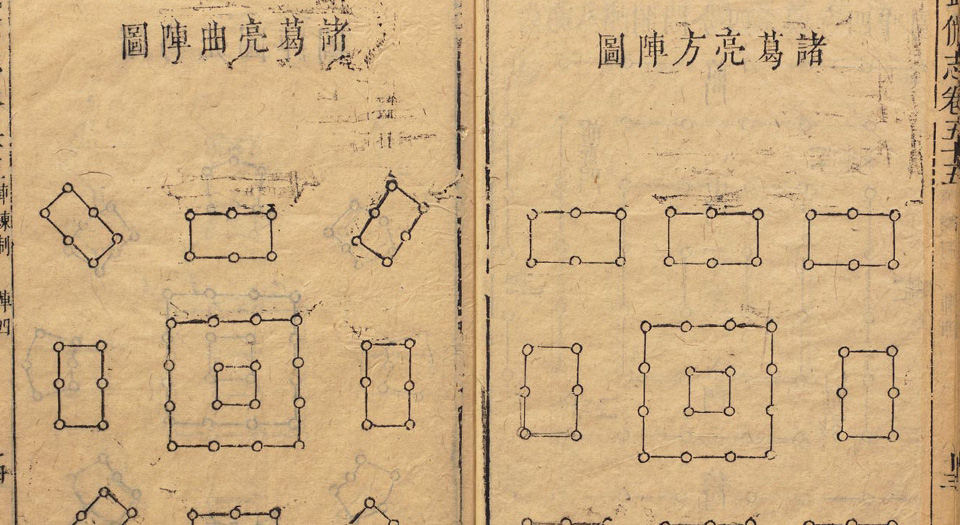 武備志卷五十五
諸葛亮方陣圖
諸葛亮曲陣圖
陣練制 陣四